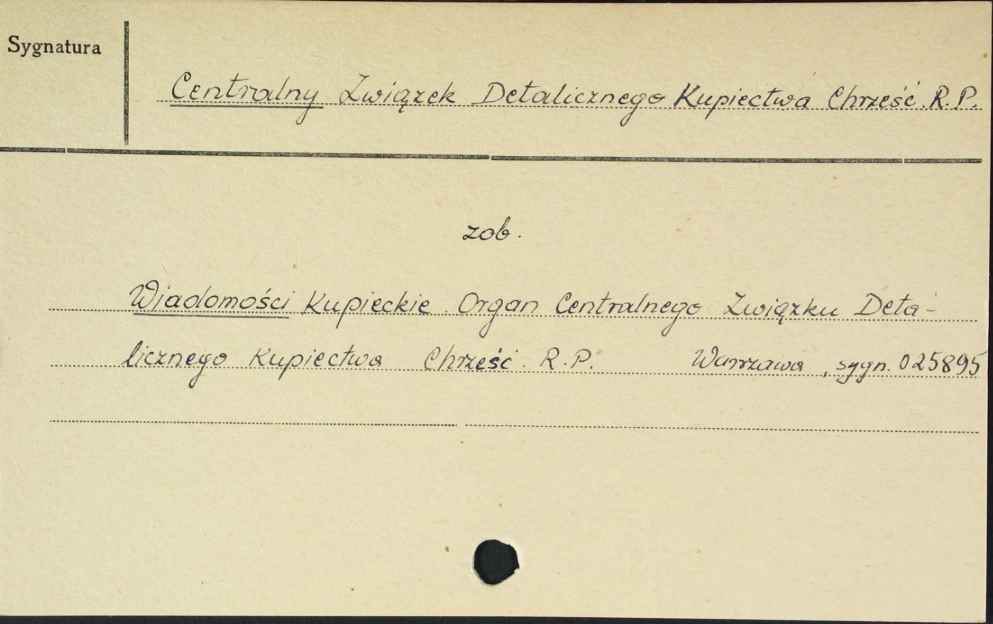 Sygnatura
Centralny Związek Detalicznego Kupiectwa Chrześć. R.P.
zob.
Wiadomości Kupieckie. Organ Centralnego Związku Deta-
licznego Kupiectwa Chrześć. R.P. Warszawa, sygn. 025895